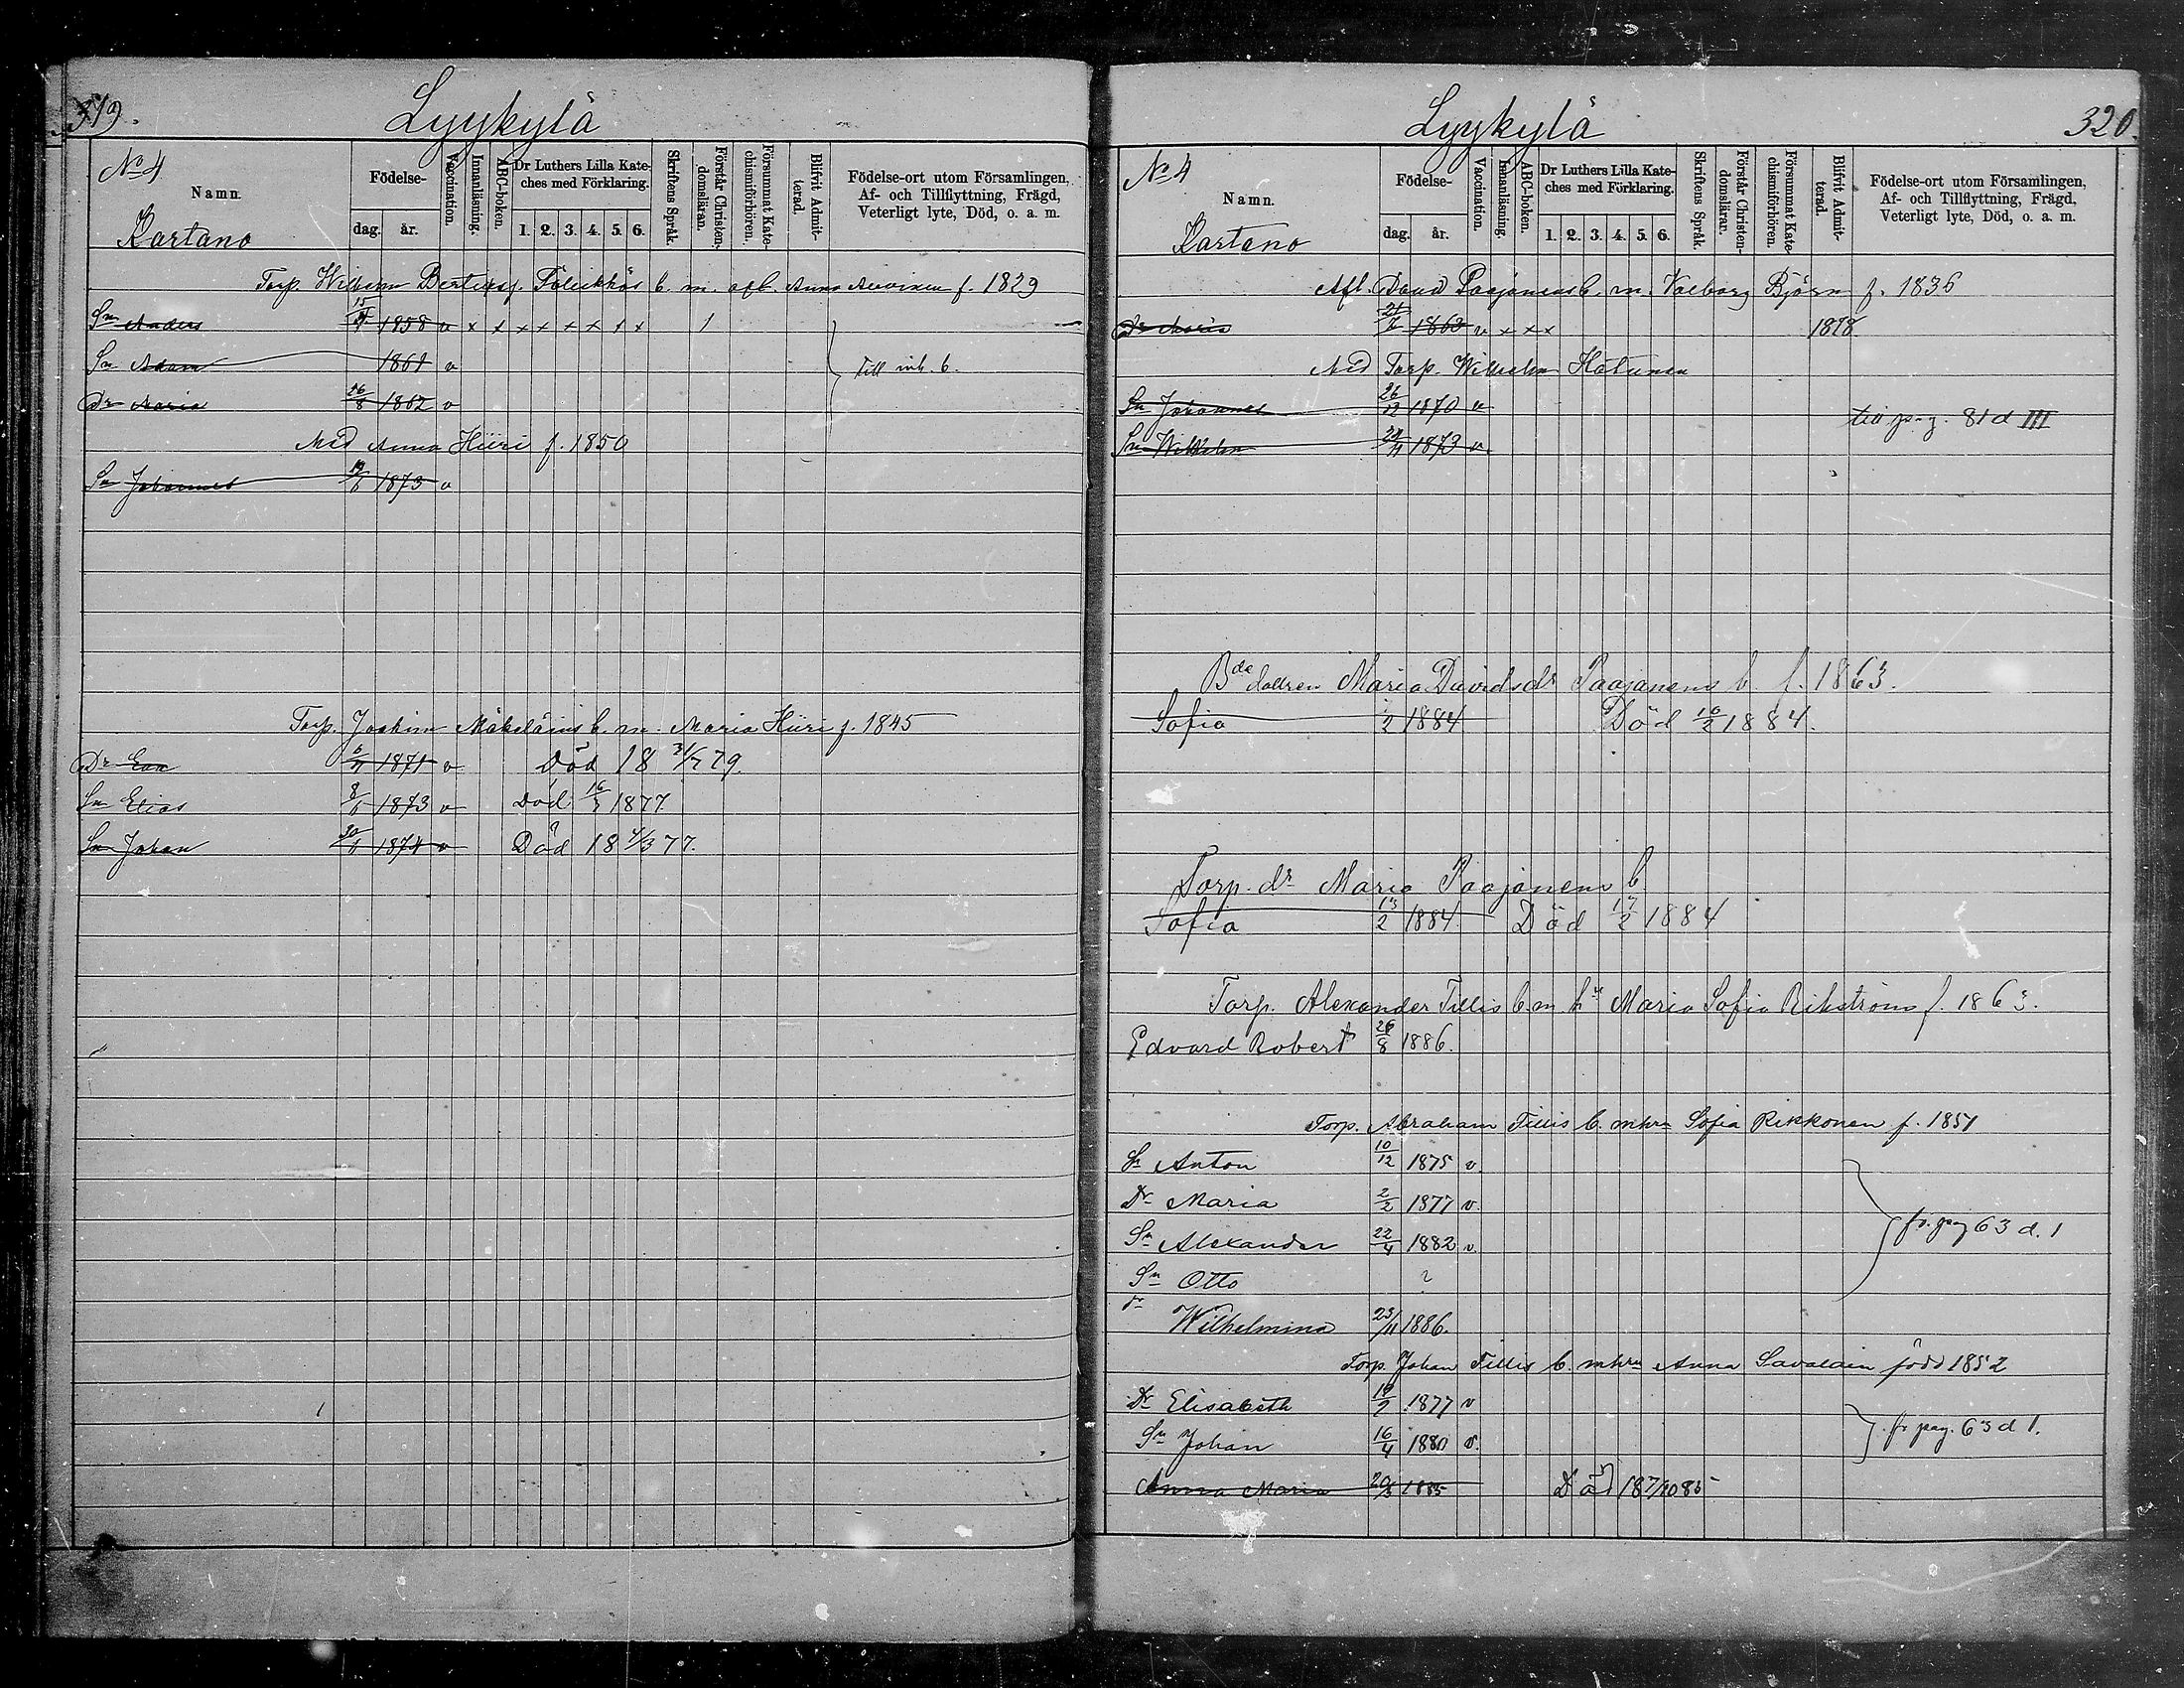 319.
Lyykylä
No 4
Namn.
Kartano
Födelse-
dag.
år.
Vaccination.
Innanläsning.
ABC-boken.
Dr Luthers Lilla Kate-
ches med Förklaring.
1. 2. 3. 4. 5. 6.
Skriftens Språk.
Förstår Christen-
domsläran.
Försummat Kate-
chismiförhören.
Blifvit Admit-
terad.
Födelse-ort utom Församlingen,
Af- och Tillflyttning, Frägd,
Veterligt lyte, Död, o. a. m.
Torp. Wilhelm b. m. afl. Anna f. 1829
Sn Anders 1858 v x x x x x x x x 1
Sn Adam 1861 v
till inh. 6.
Dr Maria 26/8 1862 v
Med Anna Hiiri f. 1850
Sn Johannes 1873 v
Torp. Joakim b. m. Maria Hiiri f. 1845
Dr Eva 1871 v Död 18 31/7 79.
Sn Elias 1873 v Död 16/3 1877.
Sn Johan 1874 v Död 18 4/3 77.
Lyykylä
320.
No 4
Namn.
Kartano
Födelse-
dag.
år.
Vaccination.
Innanläsning.
ABC-boken.
Dr Luthers Lilla Kate-
ches med Förklaring.
1. 2. 3. 4. 5. 6.
Skriftens Språk.
Förstår Christen-
domsläran.
Försummat Kate-
chismiförhören.
Blifvit Admit-
terad.
Födelse-ort utom Församlingen,
Af- och Tillflyttning, Frägd,
Veterligt lyte, Död, o. a. m.
Afl. David Paajanens b. m. Valborg Björn f. 1836
Dr Maria 1863 v x x x 1878
Med Torp. Wilhelm
Sn Johannes 26/12 1870 v
till pag. 81 d III
Sn Wilhelm 1873 v
Bde dottren Maria Davidsdr Paajanens b. f. 1863.
Sofia 1884 Död 16/2 1884.
Torp. dr Maria Paajanens b
Sofia 13/2 1884 Död 17/2 1884
Torp. Alexander Tillis b. m. Maria Sofia Rikströms f. 1863.
Edvard Robert 26/8 1886.
Torp. Abraham Tillis b. mhru Sofia Rikkonen f. 1851
Sn Anton 10/12 1875 v
Dr Maria 2/2 1877 v.
fr. pag 63 d. 1
Sn Alexander 22/4 1882 v.
Sn Otto ?
dr Wilhelmina 23/11 1886.
Torp. Johan Tillis b. mhru Anna Savolain född 1852
Dr Elisabeth 1877 v
fr pag. 63 d 1.
Sn Johan 16/4 1880 v.
Anna Maria 20/3 1885 Död 18 7/10 85